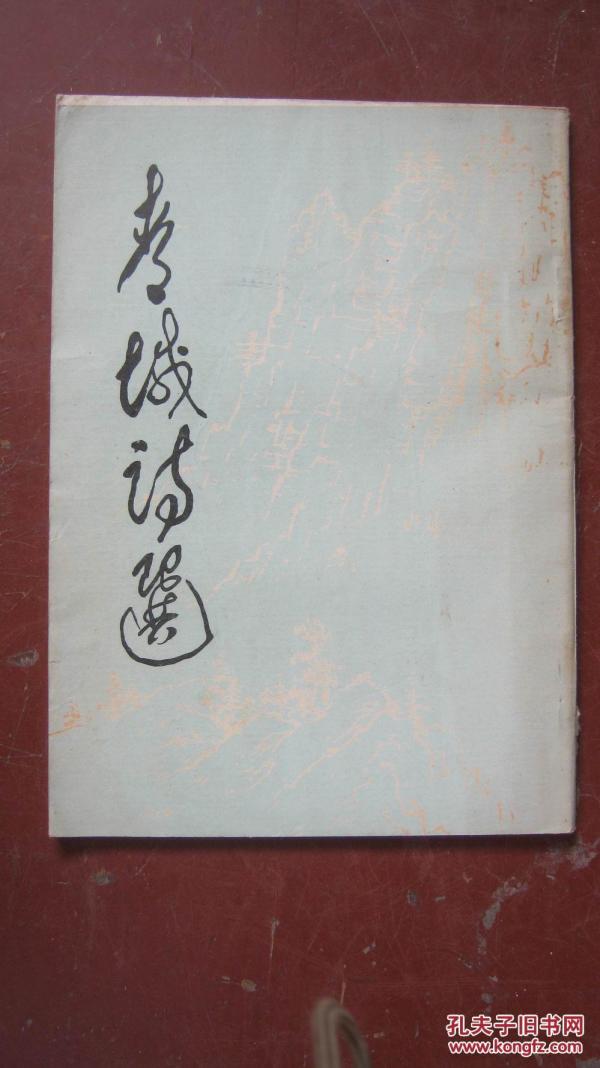 青城詩選
孔夫子旧书网
www.kongfz.com